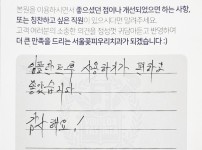 본원을 이용하시면서 좋으셨던 점이나 개선되었으면 하는 사항,
또는 칭찬하고 싶은 직원이 있으시다면 알려주세요.
고객 여러분의 소중한 의견을 정성껏 귀담아듣고 반영하여
더 큰 만족을 드리는 서울꽃피우리치과가 되겠습니다 :)
임플란트로 사용하기가 편하고
좋았습니다.
감사해요!